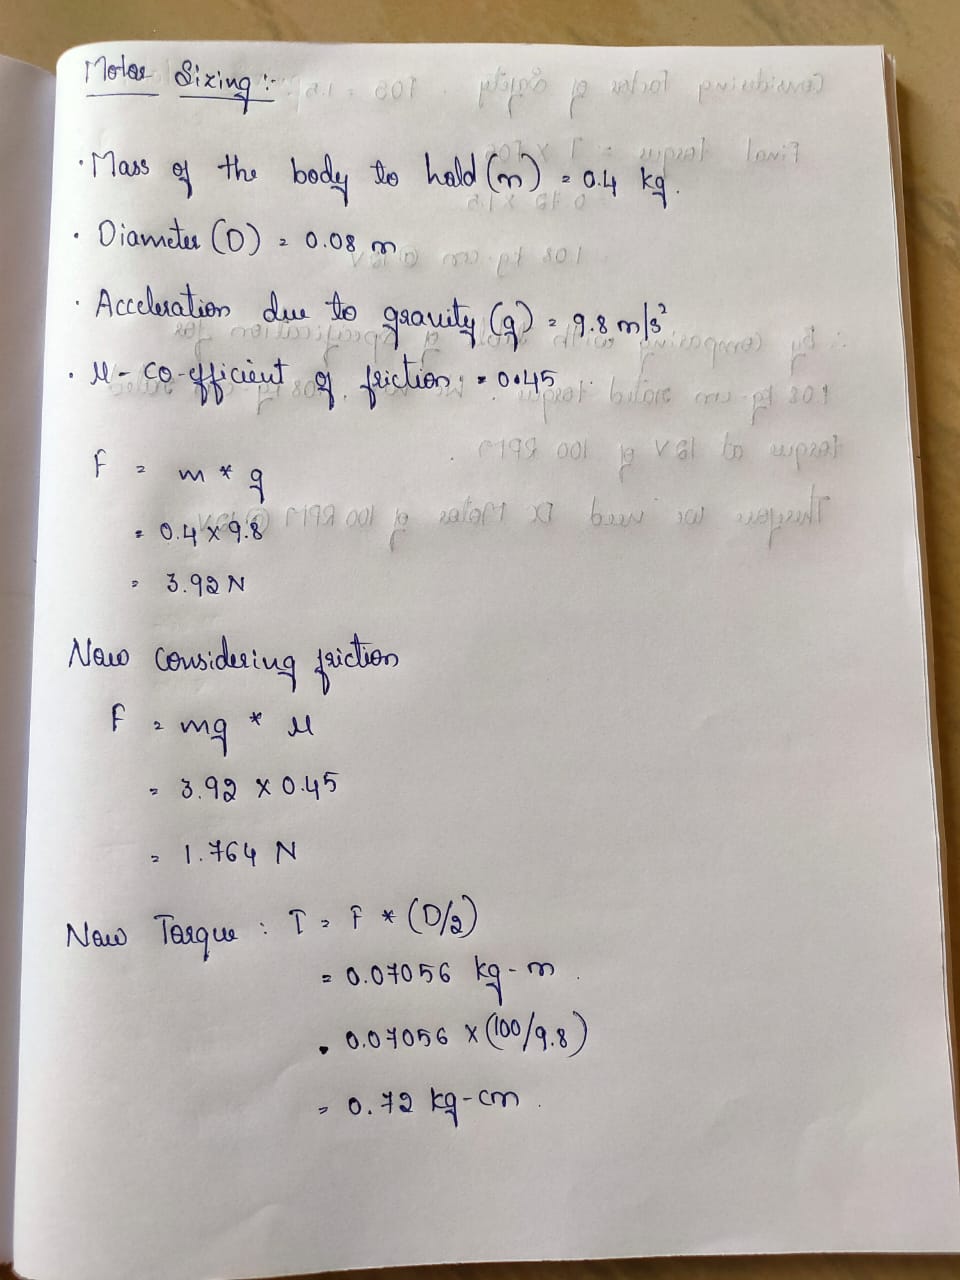 Motor Sizing :-
· Mass of the body to hold (m) = 0.4 kg.
· Diameter (D) = 0.08 m
· Acceleration due to gravity (g) = 9.8 m/s²
· μ - co-efficient of friction = 0.45
F = m * g
= 0.4 x 9.8
= 3.92 N
Now considering friction
F = mg * μ
= 3.92 x 0.45
= 1.764 N
Now Torque : T = F * (D/2)
= 0.07056 kg-m.
= 0.07056 x (100/9.8)
= 0.72 kg-cm.